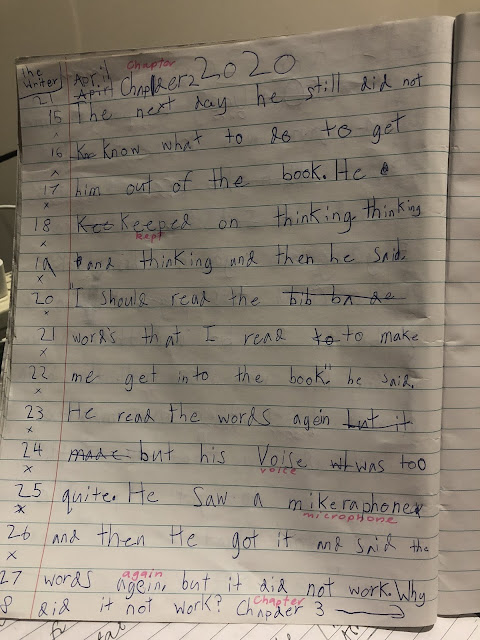 The Writer April Chapter
21 Apirl Chapder 2 2020
15 The next day he still did not
16 Know what to do to get
17 him out of the book. He
18 Keeped on thinking thinking
kept
19 and thinking and then he said.
20 I should read the
21 words that I read to to make
22 me get into the book." he said.
23 He read the words agein but it
24 made but his Voise was too
voice
25 quite. He saw a mikeraphone
microphone
26 and then He got it and said the
again
27 words agein, but it did not work. Why
Chapter
8 did it not work? Chapder 3